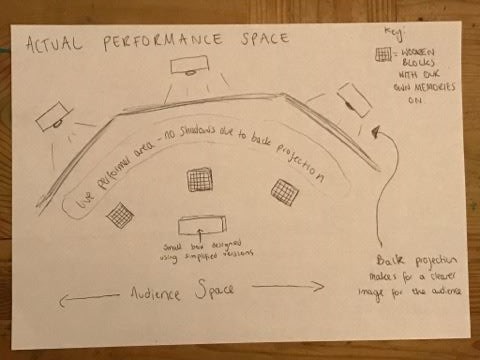 ACTUAL PERFORMANCE SPACE
Key:
= WOODEN
BLOCKS
WITH OUR
OWN MEMORIES
ON.
Live performer area - no shadows due to back projection
Small box designed
using simplified versions
Back projection
makes for a clearer
image for the audience
Audience Space